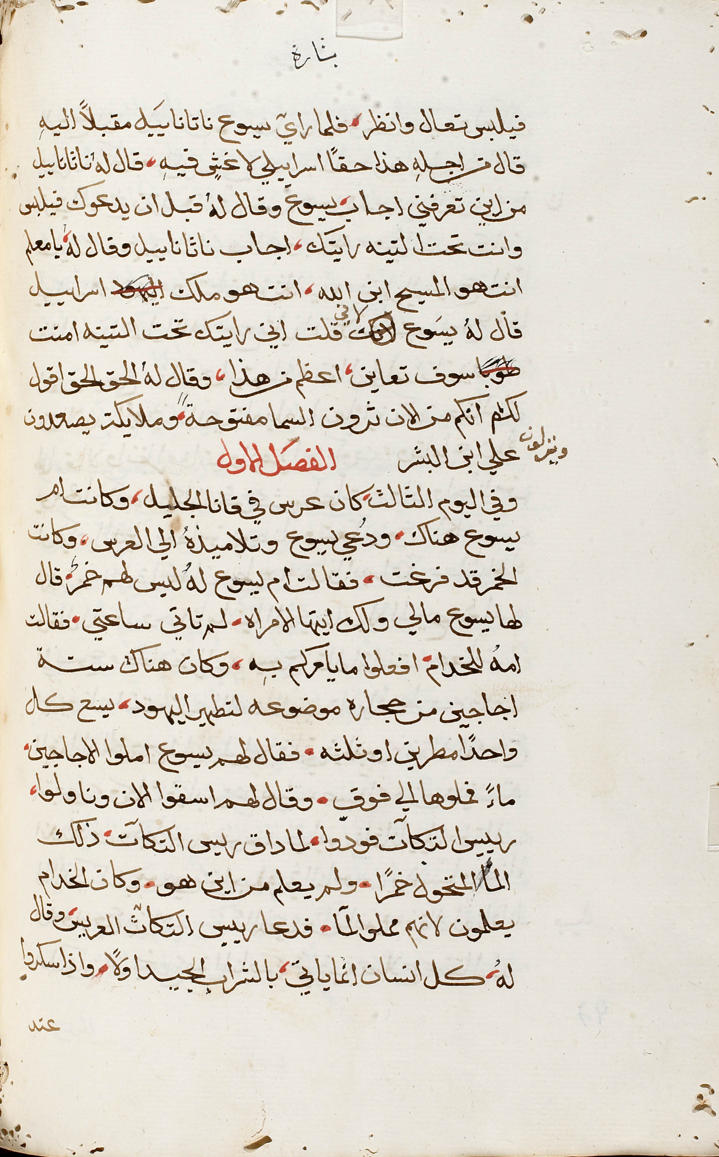 بشارة
فيلبس تعال وانظر، فلما راي يسوع ناتاناييل مقبلاً اليه
قال من اجله هذا حقاً اسراييلي لا غش فيه، قال له ناتاناييل
من اين تعرفني اجاب يسوع وقال له قبل ان يدعوك فيلبس
وانت تحت التينه رايتك، اجاب ناثاناييل وقال له يا معلم
انت هو المسيح ابن الله، انت هو ملك اسراييل
قال له يسوع لاني قلت اني رايتك تحت التينه امنت
سوف تعاين اعظم من هذا، وقال له الحق الحق اقول
لكم انكم من الان ترون السما مفتوحة، وملايكة يصعدون
وينزلون
علي ابن البشر الفصل الاول
وفي اليوم الثالث كان عرس في قانا الجليل، وكانت ام
يسوع هناك، ودُعي يسوع وتلاميذهُ الي العرس، وكانت
الخمر قد فرغت، فقالت ام يسوع لهُ ليس لهم خمرٌ، قال
لها يسوع مالي ولك ايتها الامراه، لم تاتي ساعتي، فقالت
امهُ للخدام، افعلوا ما يامركم به، وكان هناك ستة
اجاجين من حجاره موضوعه لتطهير اليهود، يسع كل
واحداً مطرين او ثلثه، فقال لهم يسوع املوا الاجاجين،
ماءً فملوها الي فوق، وقال لهم اسقوا الان وناولوا،
رييس التكاآت فودّوا، لما داق رييس التكاآت، ذلك
الما المتحول خمرًا، ولم يعلم من اين هو، وكان الخدام
يعلمون لانهم مملوا الما، فدعا رييس التكاآت العريس، وقال
لهُ، كل انسان انما ياتي، بالشراب الجيد اولًا، واذا سكروا
عند